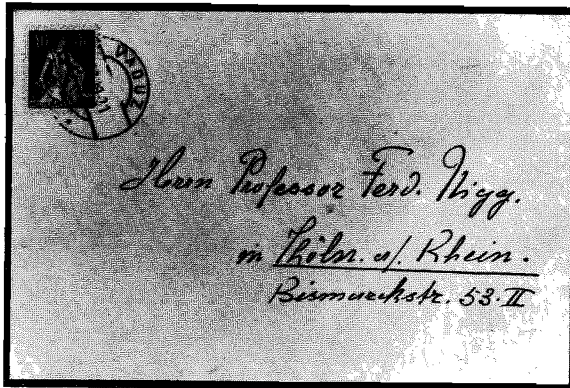 VADUZ
Herrn Professor Ferd. Nigg.
in Köln. a/. Rhein.
Bismarckstr. 53. II